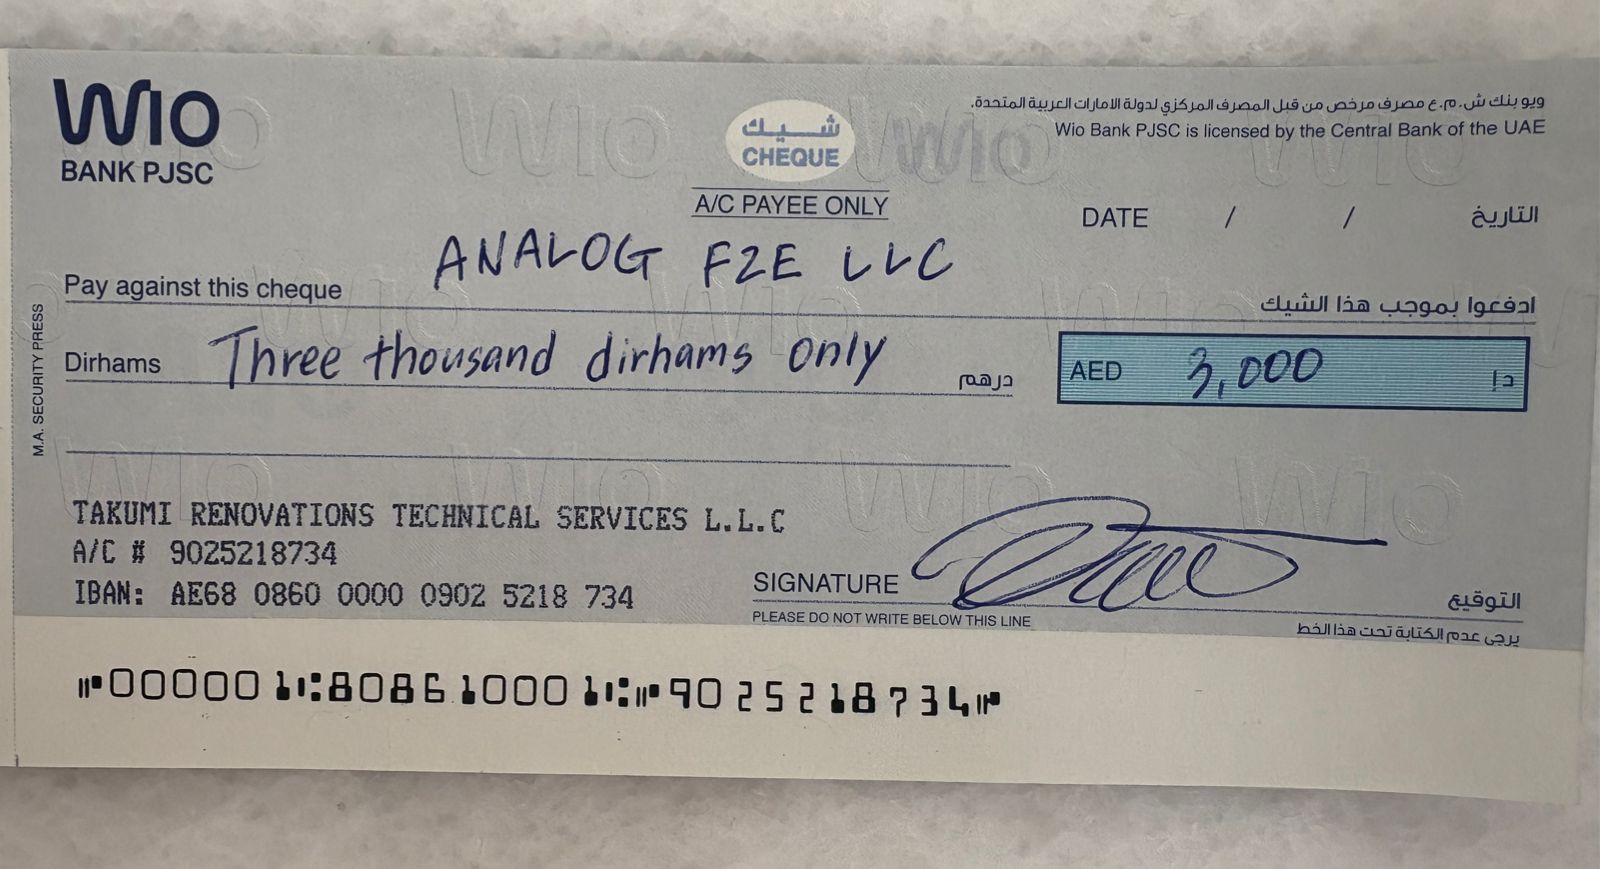 WIO
BANK PJSC
شيك
CHEQUE
A/C PAYEE ONLY
ويو بنك ش.م.ع مصرف مرخص من قبل المصرف المركزي لدولة الامارات العربية المتحدة.
Wio Bank PJSC is licensed by the Central Bank of the UAE
DATE / / التاريخ
Pay against this cheque ANALOG FZE LLC ادفعوا بموجب هذا الشيك
Dirhams Three thousand dirhams only درهم
AED 3,000 د.إ
M.A. SECURITY PRESS
TAKUMI RENOVATIONS TECHNICAL SERVICES L.L.C
A/C # 9025218734
IBAN: AE68 0860 0000 0902 5218 734
SIGNATURE التوقيع
PLEASE DO NOT WRITE BELOW THIS LINE يرجى عدم الكتابة تحت هذا الخط
⑈000001⑆808610001⑆⑈9025218734⑈